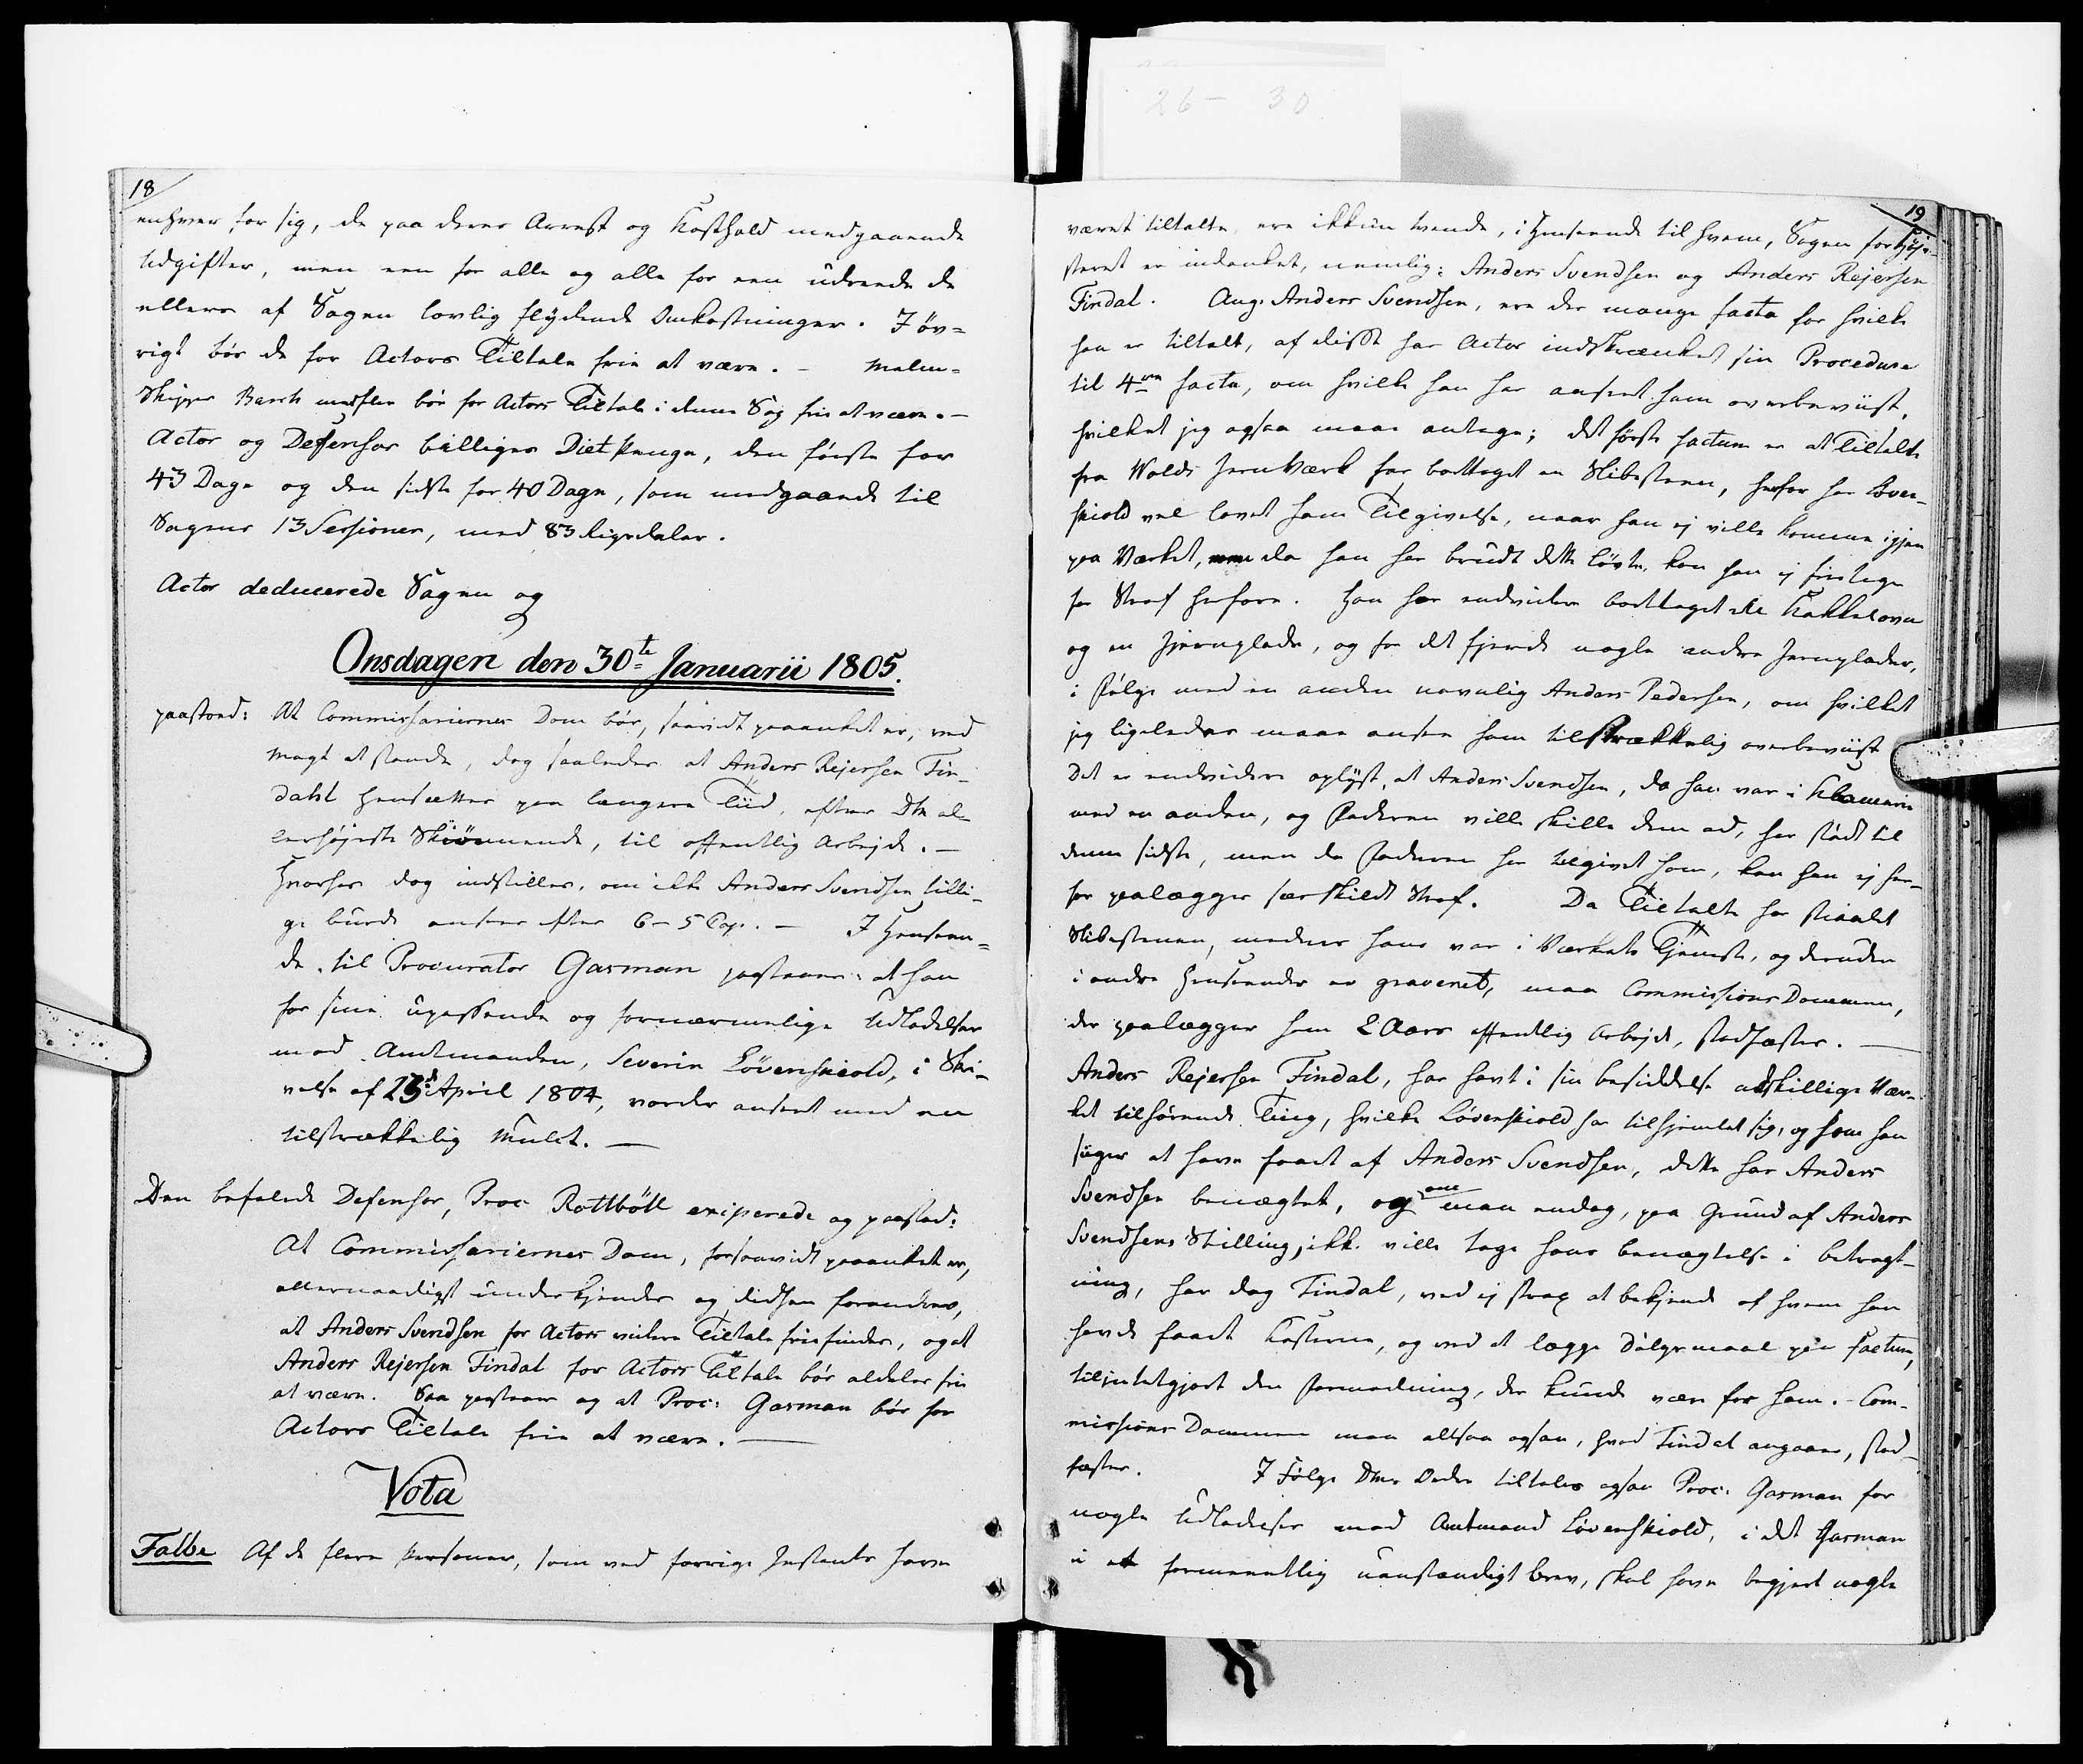 26 - 30
18
enhver for sig, de paa deres Arrest og Kosthold medgaaende
Udgifter, men een for alle og alle for een udreede de
ellers af Sagen lovlig flydende Omkostninger. I øv=
rigt bør de for Actors Tiltale frie at være. - Malm=
Skipper Barth bør for Actors Tiltale i denne Sag frie at være. -
Actor og Defensor billiges Diet Penge, den første for
43 Dage og den sidste for 40 Dage, som medgaaende til
Sagens 13 Sessioner, med 83 Rigsdaler.
Actor deducerede Sagen og
Onsdagen den 30te Januarii 1805.
paastod: At Commissariernes Dom bør, saavidt paaanket er, ved
Magt at stande, dog saaledes at Anders Rejersen Fin-
dahl hensættes paa længere Tiid, efter Dtes al-
lerhøjeste Skiønnende, til offentlig Arbejde. -
Hvorhos dog indstilles, om ikke Anders Svendsen tilli-
ge burde ansees efter 6 - 5 Cap. - I Henseen=
de til Procurator Gasman paastaaes: at han
for sine upassende og fornærmelige Udladelser
mod Amtmanden, Severin Løvenskiold, i Skri-
velse af 23de April 1804, vorder anseet med en
tilstrækkelig Mulct. -
Den befalede Defensor, Proc Rottbøll exciperede og paastod:
At Commissariernes Dom, forsaavidt paaanket er,
allernaadigst underkjendes og didhen forandres,
at Anders Svendsen for Actors videre Tiltale frie findes, og at
Anders Rejersen Findal for Actors Tiltale bør aldeles frie
at være. Saa paastaaes og at Proc: Gasman bør for
Actors Tiltale frie at være. -
Vota
Falbe Af de flere Personer, som ved forrige Instants have
19
været tiltalte, ere ikkun tvende, i Henseende til hvem, Sagen for Højs-
teret er indanket, nemlig: Anders Svendsen og Anders Rejersen
Findal. Ang: Anders Svendsen, ere der mange facta for hvilke
han er tiltalt, af disse har Actor indskrænket sin Procedure
til 4re facta, om hvilke han har anseet ham overbeviist,
hvilket jeg ogsaa maae antage; det første factum er at Tiltalte
fra Wolds Jernværk har borttaget en Slibesteen, herfor har Løven-
skiold vel lovet ham Tilgivelse, naar han ej ville komme igjen
paa Værket, men da han har brudt dette Løvte, kan han ej fritages
for Straf herfore. Han har endvidere borttaget 2de Kakkelovne
og en Jernplade, og for det fjerde nogle andre Jernplader,
i Følge med en anden navnlig Anders Pedersen, om hvilket
jeg ligeledes maae ansee ham tilstrækkelig overbeviist
Det er endvidere oplyst, at Anders Svendsen, da han var i Klammerie
med en anden, og Faderen ville skille dem ad, har stødt til
denne sidste, men da Faderen har tilgivet ham, kan han ej her-
for paalægges særskildt Straf. Da Tiltalte har stiaalet
Slibestenen, medens han var i Værkets Tjeneste, og desuden
i andre Henseender er graveret, maa Commissions Dommen,
der paalægger ham 2 Aars offentlig Arbejde, stadfæstes. -
Anders Rejersen Findal, har havt i sin besiddelse adskillige Vær-
ket tilhørende Ting, hvilke Løvenskiold har tilhjemlet sig, og som han
siger at have faaet af Anders Svendsen, dette har Anders
Svendsen benægtet, og om man endog, paa Grund af Anders
Svendsens Stilling, ikke ville tage hans benægtelse i betragt-
ning, har dog Findal, ved ej strax at bekjende af hvem han
havde faaet Kosterne, og ved at lægge Dølgsmaal paa factum,
tilintetgjort den Formodning, der kunde være for ham. - Com-
missions Dommen maa altsaa ogsaa, hvad Findal angaaer, stad-
fæstes. I Følge Dtes Ordre tiltales ogsaa Proc: Gasman for
nogle Udladelser mod Amtmand Løvenskiold, i det Gasman
i et formeentlig uanstændigt Brev, skal have begjert nogle